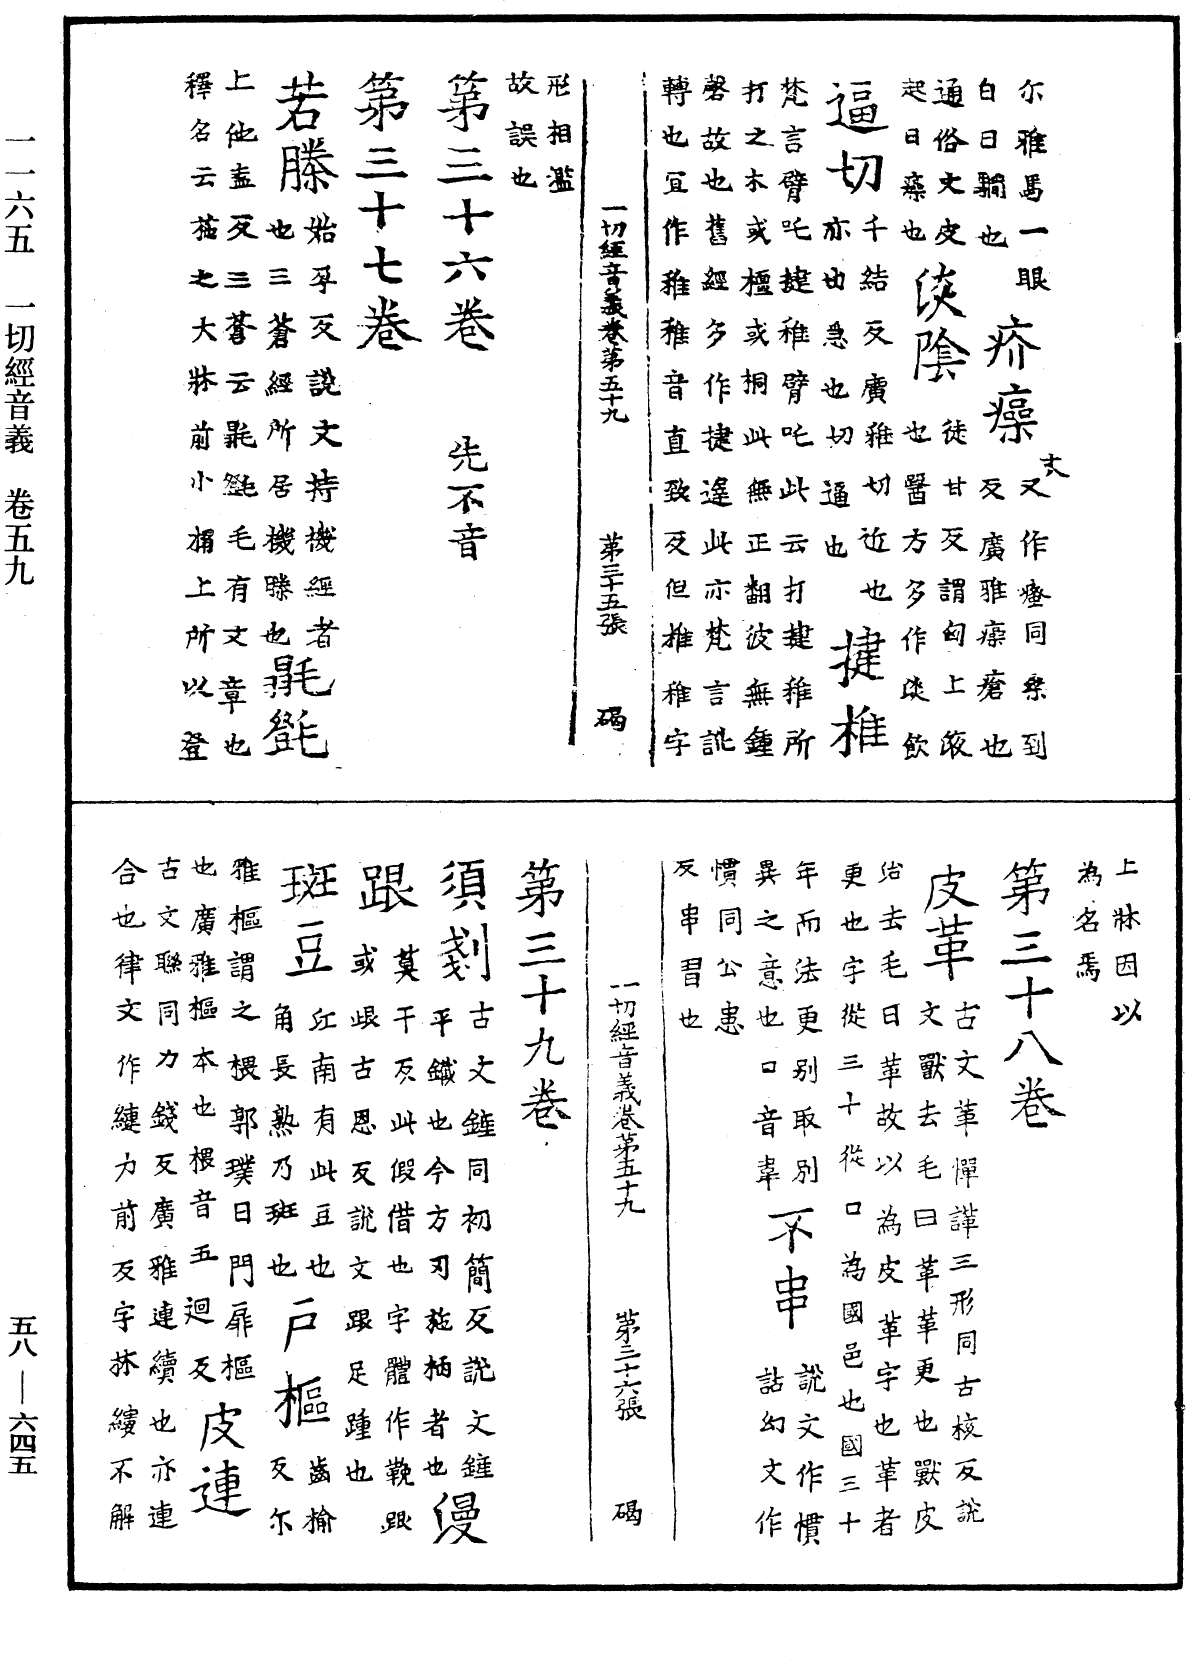 尔雅馬一眼
白曰瞷也
疥瘙
又作瘙同桒到
反廣雅瘙瘡也
通俗文皮
起曰瘙也
淡陰
徒甘反謂匈上液
也醫方多作淡飲
逼切
千結反廣雅切近也
亦切也急也切逼也
揵椎
梵言臂吒揵稚臂吒此云打揵稚所
打之木或檀或桐此無正翻彼無鍾
磬故也舊經多作揵遲此亦梵言訛
轉也冝作稚稚音直致反但椎稚字
一切經音義卷第五十九 第三十五張 碣
形相濫
故誤也
第三十六卷 先不音
第三十七卷
若縢
始孕反說文持機經者
也三蒼經所居機縢也
㲮㲪
上他盍反三蒼云㲮㲪毛有文章也
釋名云施之大牀前小榻上所以登
上牀因以
為名焉
第三十八卷
皮革
古文革愅諽三形同古核反說
文獸去毛曰革革更也獸皮
治去毛曰革故以為皮革字也革者
更也字從三十從口為國邑也國三十
年而法更别取别
異之意也口音韋
不串
說文作慣
詁幻文作
慣同公患
反串習也
一切經音義卷第五十九 第三十六張 碣
第三十九卷
須剗
古文鏟同初簡反說文鏟
平鐵也今方刃施柄者也
縵跟
莫干反此假借也字體作鞔跟
或垠古恩反說文跟足踵也
斑豆
江南有此豆也
角長熟乃斑也
戶樞
齒揄
反尔
雅樞謂之椳郭璞曰門扉樞
也廣雅樞本也椳音五迴反
皮連
古文聯同力錢反廣雅連續也亦連
合也律文作縺力前反字林縷不解
一一六五 一切經音義 卷五九
五八—六四五